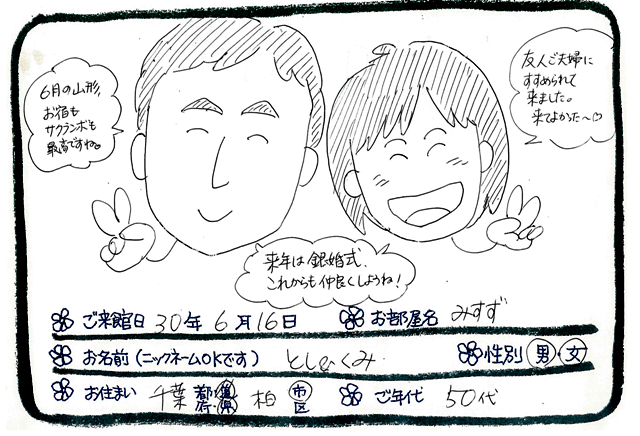 6月の山形、
お宿も
サクランボも
最高ですね。
友人ご夫妻に
すすめられて
来ました。
来てよかった〜♡
来年は銀婚式、
これからも仲良くしようね!
ご来館日 30年 6月16日 お部屋名 みすず
お名前(ニックネームOKです) とし&くみ 性別 男・女
お住まい 千葉 都道府県 柏 市区 ご年代 50代